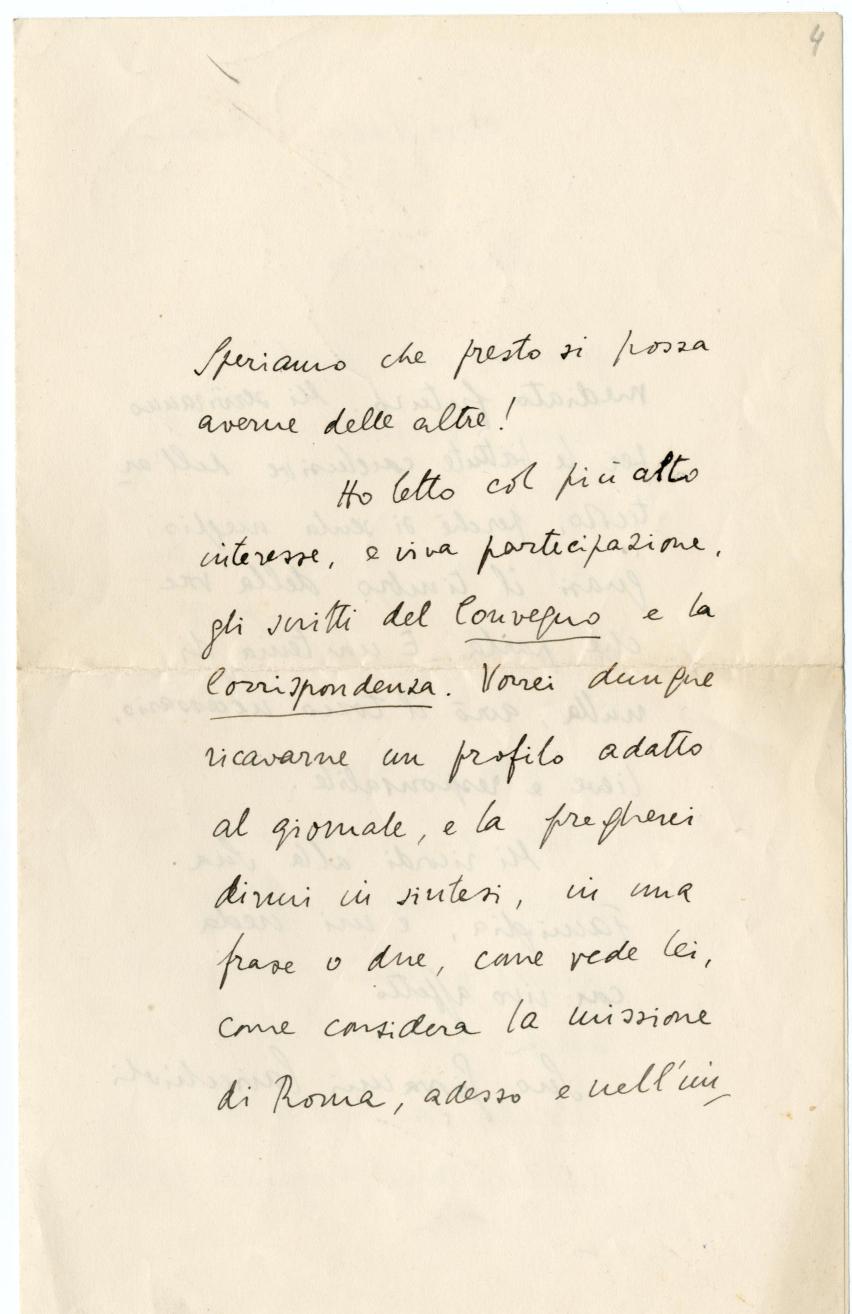 4
Speriamo che presto si possa
averne delle altre!
Ho letto col più alto
interesse, e viva partecipazione,
gli scritti del Convegno e la
Corrispondenza. Vorrei dunque
ricavarne un profilo adatto
al giornale, e la pregherei
dirmi in sintesi, in una
frase o due, come vede lei,
come considera la missione
di Roma, adesso e nell'im-